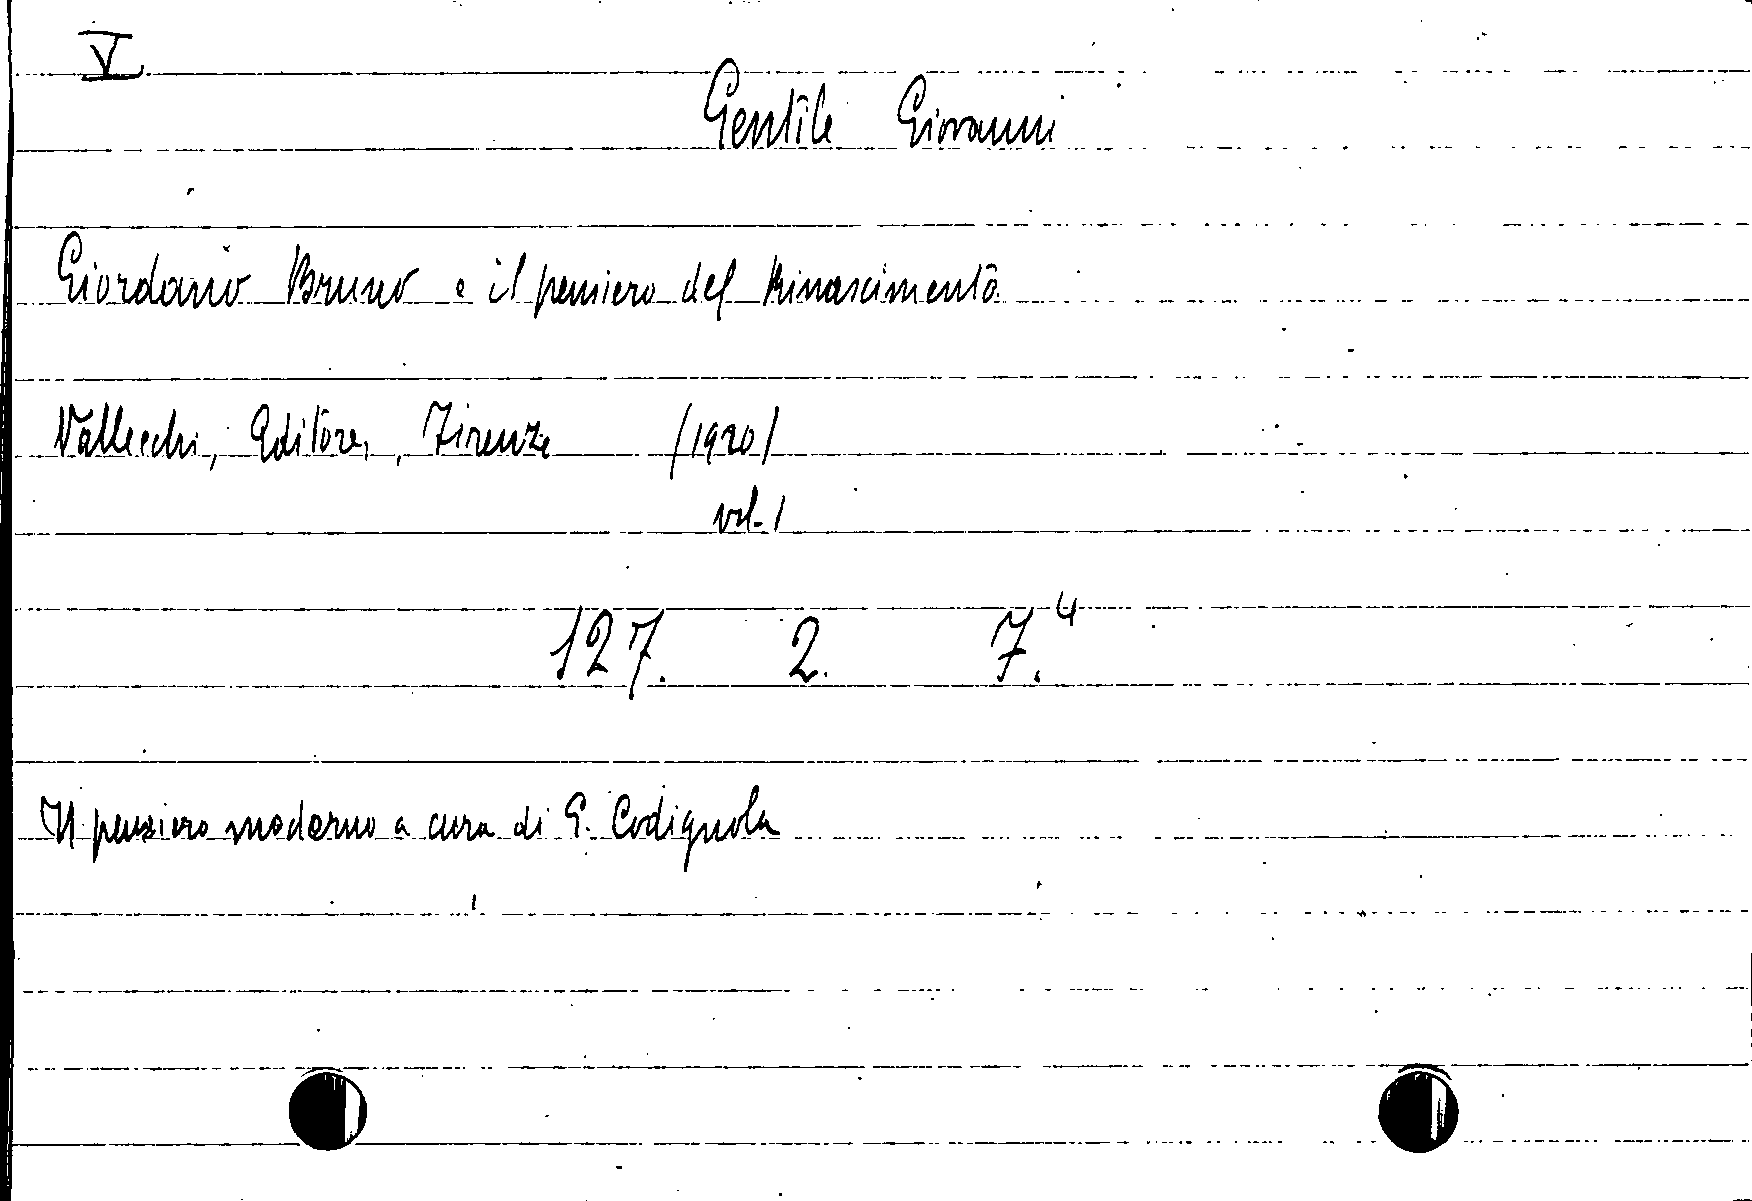 V
Gentile Giovanni
Giordano Bruno e il pensiero del Rinascimento
Vallecchi, Editore, Firenze /1920/
vol. 1
127. 2. 7.⁴
Il pensiero moderno a cura di E. Codignola